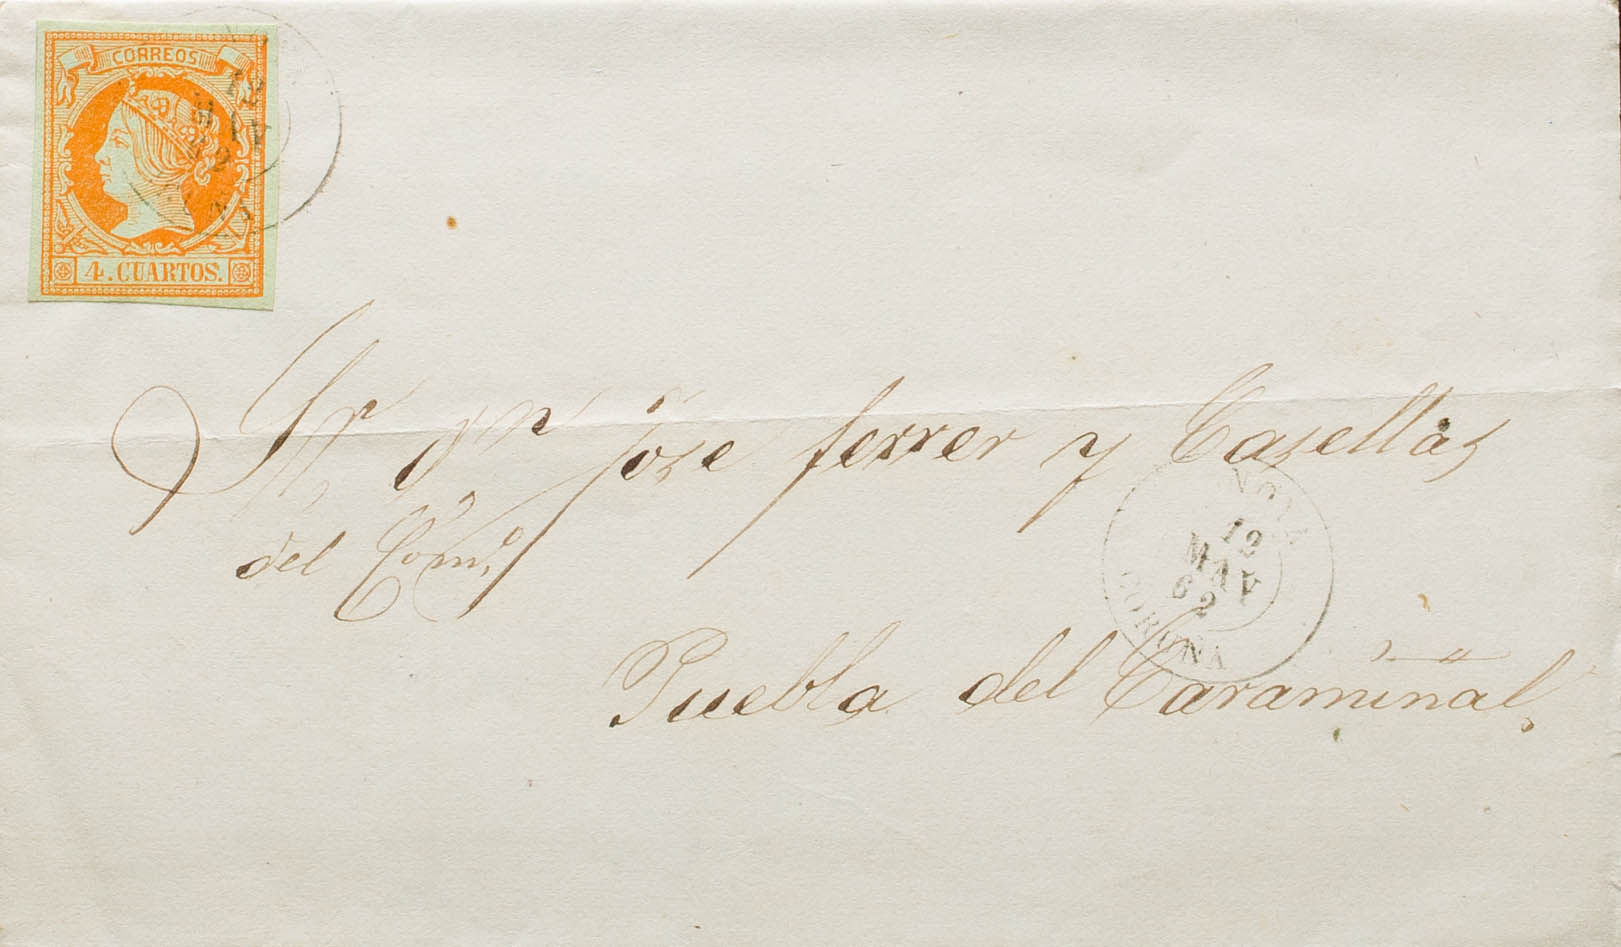 CORREOS
4. CUARTOS.
12
MAY
62
Sr. Dn. José ferrer y Casellas
del Como.
12
MAY
62
CORUÑA
Puebla del Caramiñal.